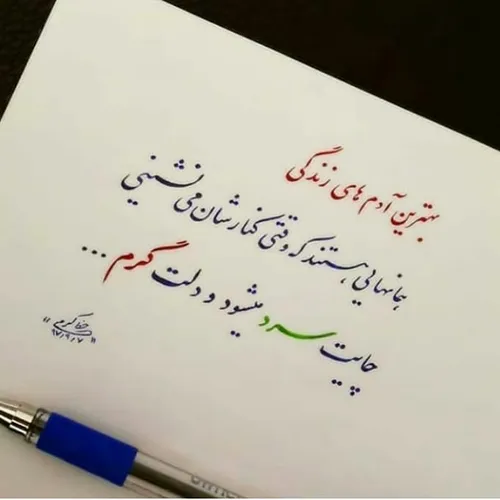 بهترین آدم های زندگی
همانهایی هستند که وقتی کنارشان می نشینی
چایت سرد میشود و دلت گرم ...
۹۷٫۹٫۷